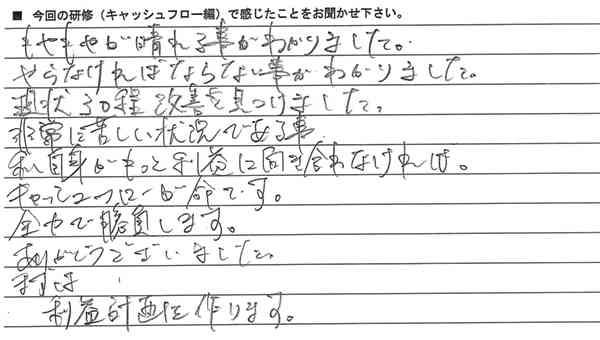 ■ 今回の研修（キャッシュフロー編）で感じたことをお聞かせ下さい。
もやもやが晴れる事がわかりました。
やらなければならない事がわかりました。
現状30程改善を見つけました。
非常に苦しい状況である事
私自身がもっと利益に向き合わなければ。
キャッシュフローが命です。
全力で勝負します。
ありがとうございました。
まずは
利益計画を作ります。